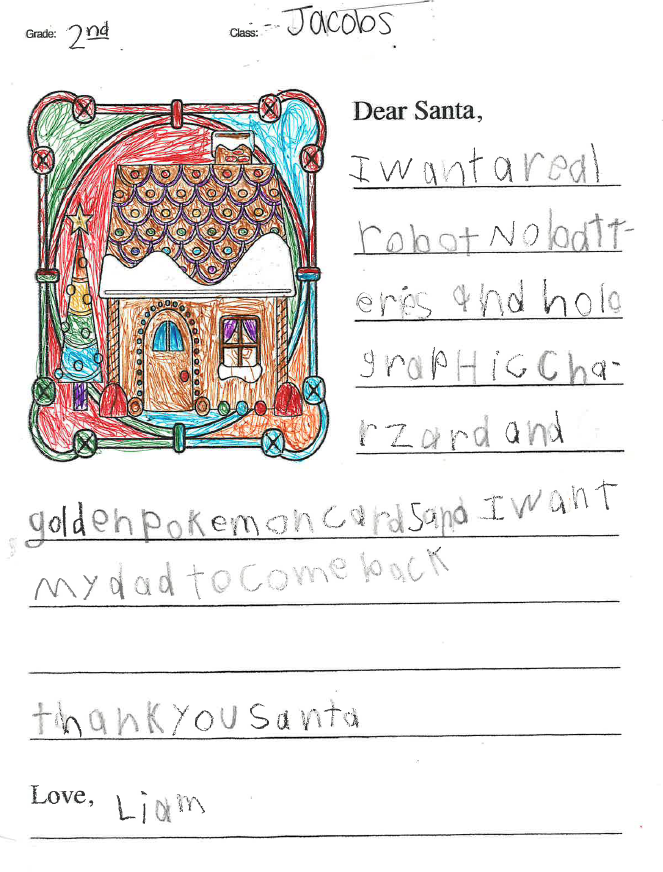 Grade: 2nd Class: Jacobs
Dear Santa,
I want a real
robot No batt-
eries and holo
grapHic Cha-
rzard and
golden pokemon cards and I want
my dad to come back
thank you Santa
Love, Liam